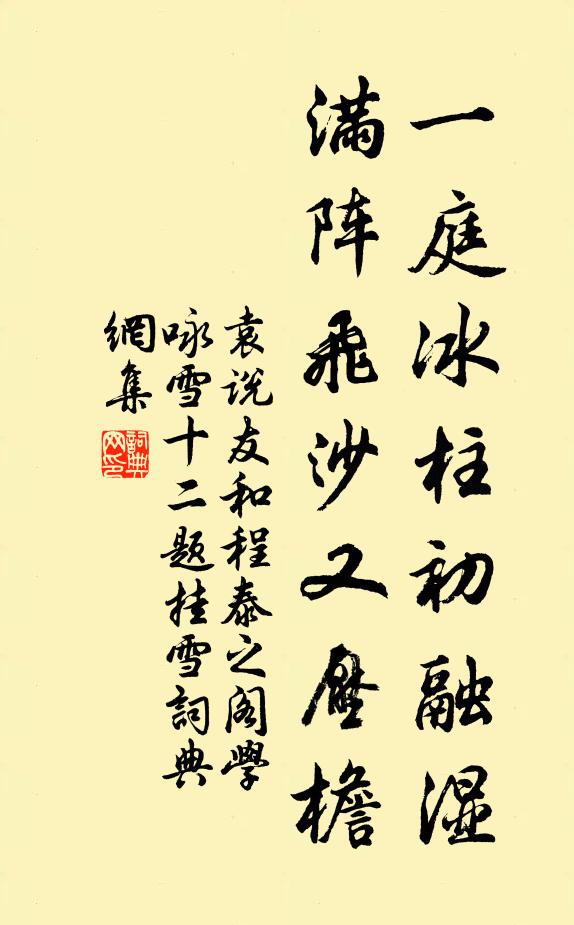 一庭冰柱初融湿
满阵飛沙又壓檐
袁说友和程泰之阁學
咏雪十二题挂雪詞典
網集
詞典網印